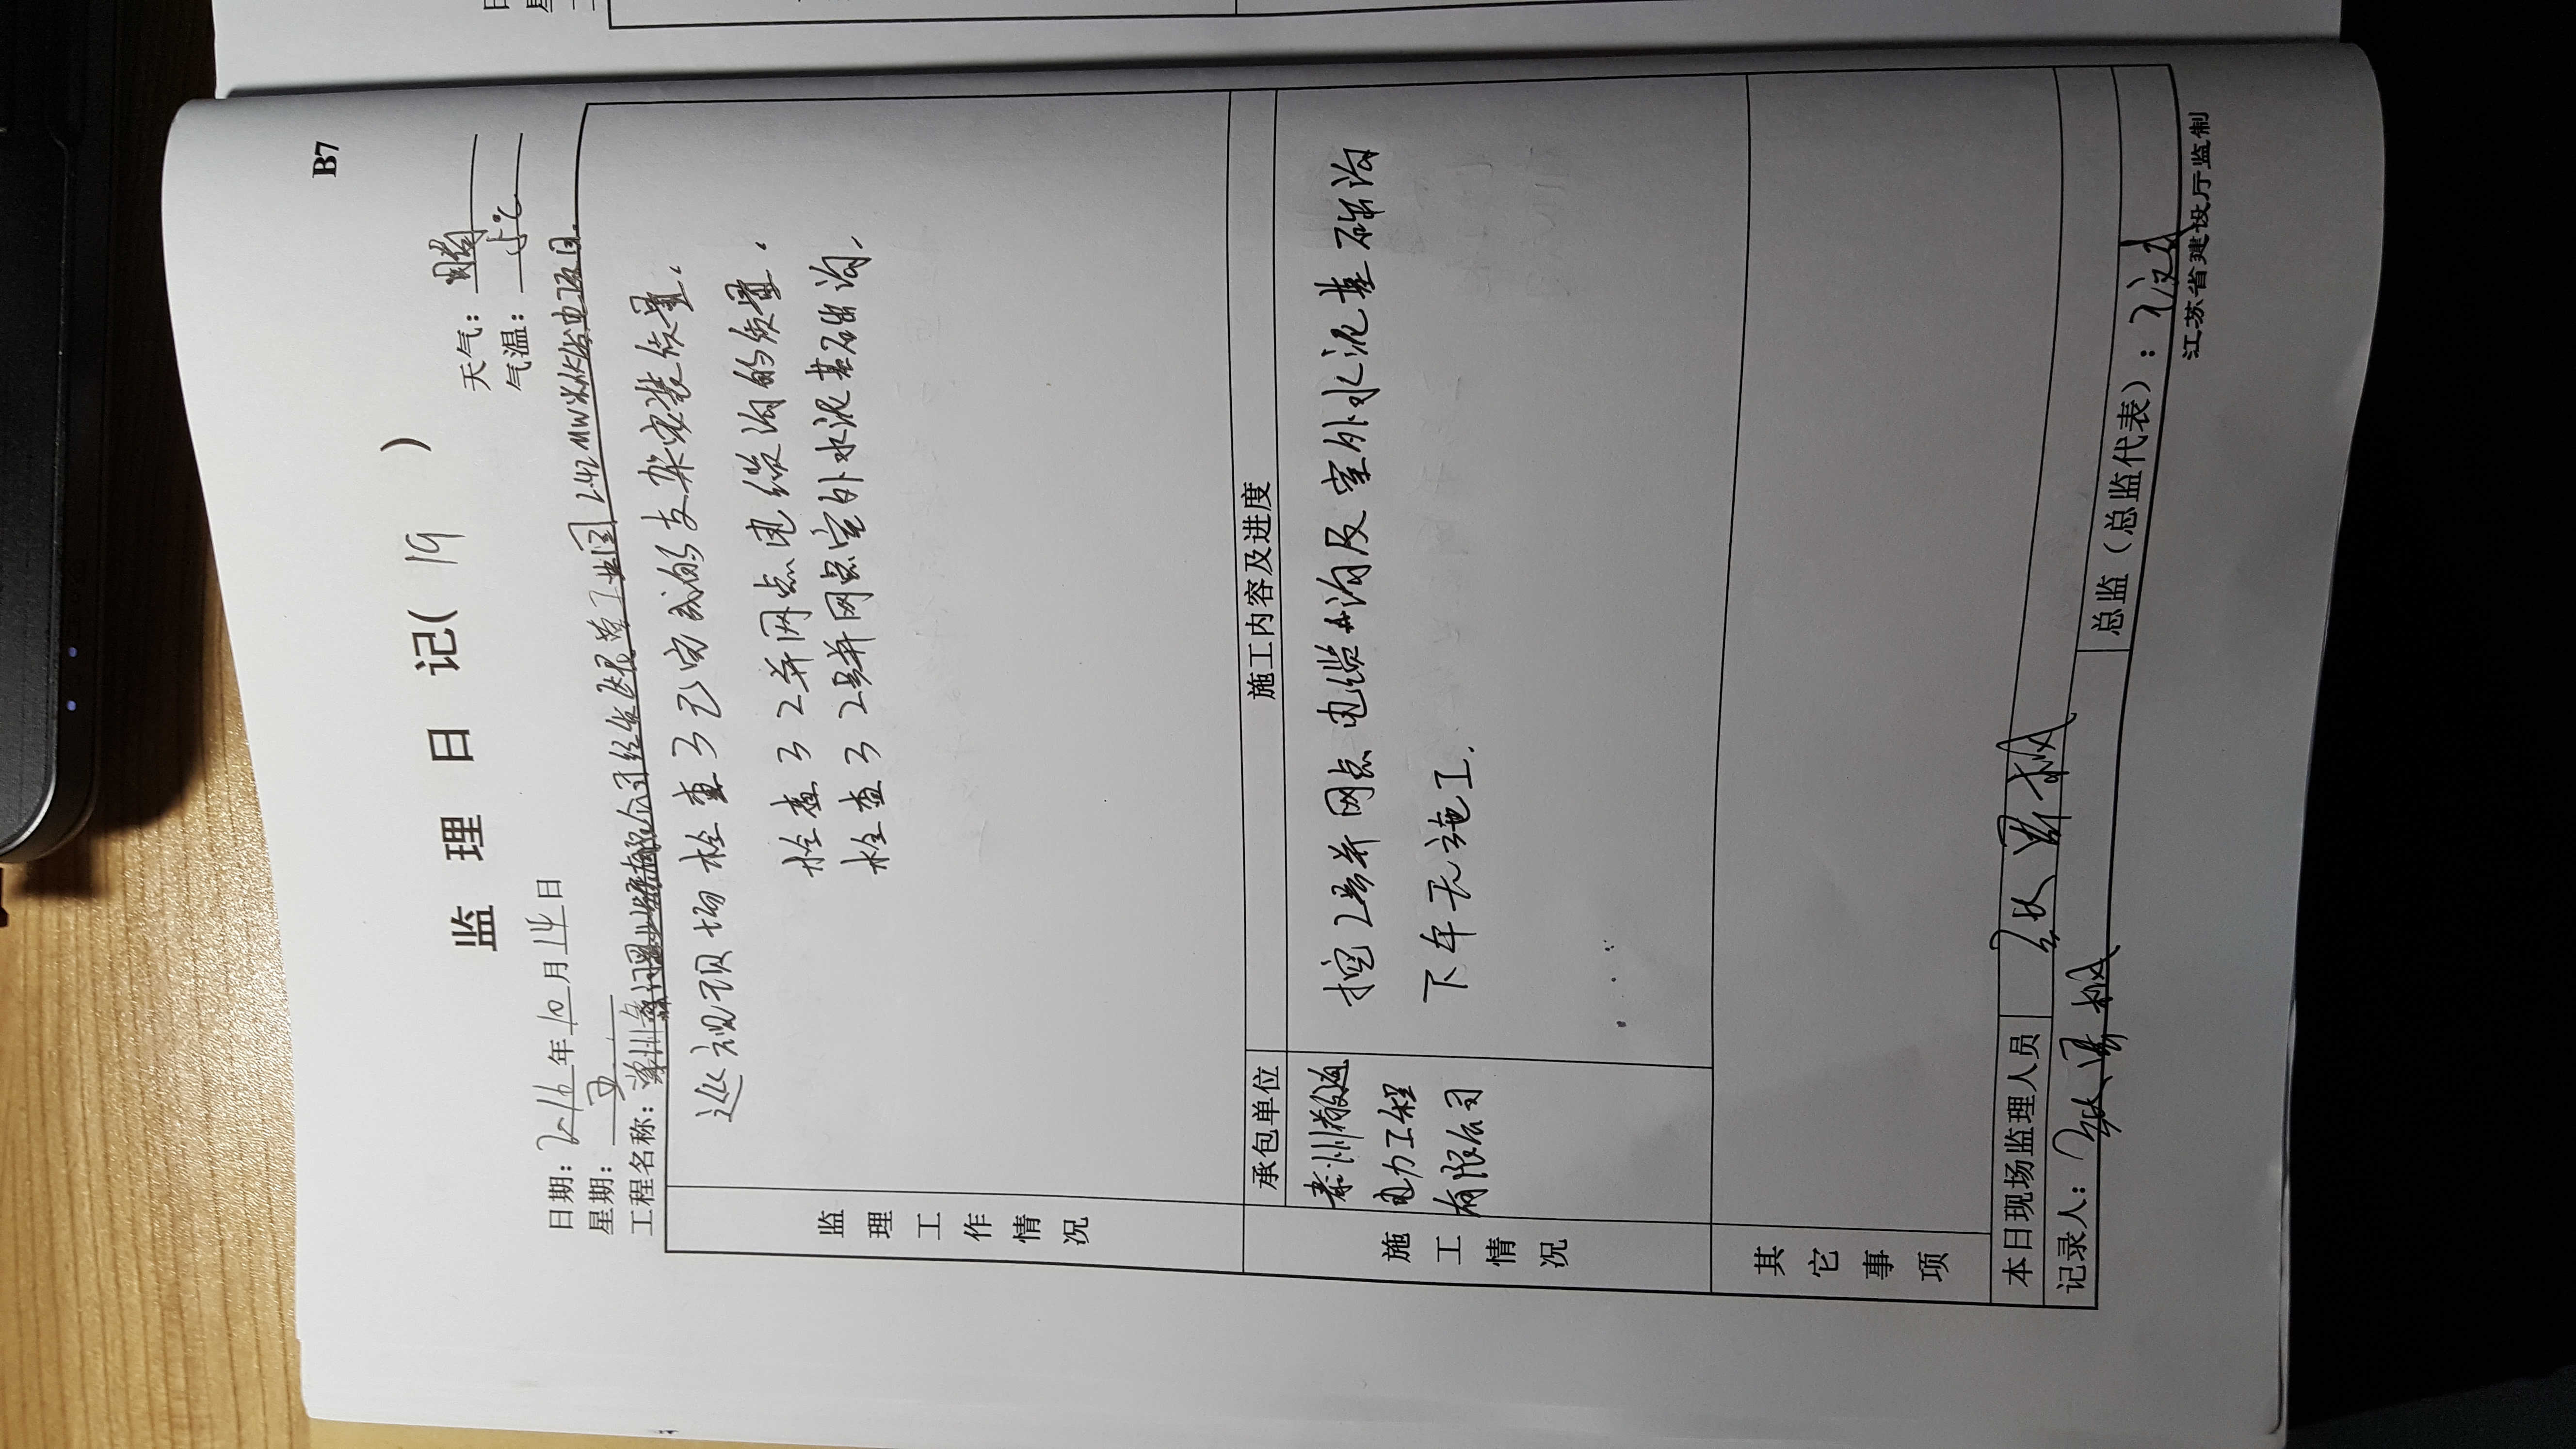 B7
监理日记( 19 )
日期：2016年10月14日 天气：晴
星期：五 气温：
工程名称： 有限公司 工业园2.42MW光伏发电项目
监理工作情况
巡视现场检查了已完成的支架安装质量.
检查了2并网点电缆沟的质量.
检查了2号并网点室外水泥基础沟.
承包单位 施工内容及进度
施工情况
泰州 电力工程有限公司
挖2号并网点电缆沟及室外水泥基础沟
下午无施工.
其它事项
本日现场监理人员
记录人： 总监（总监代表）：
江苏省建设厅监制